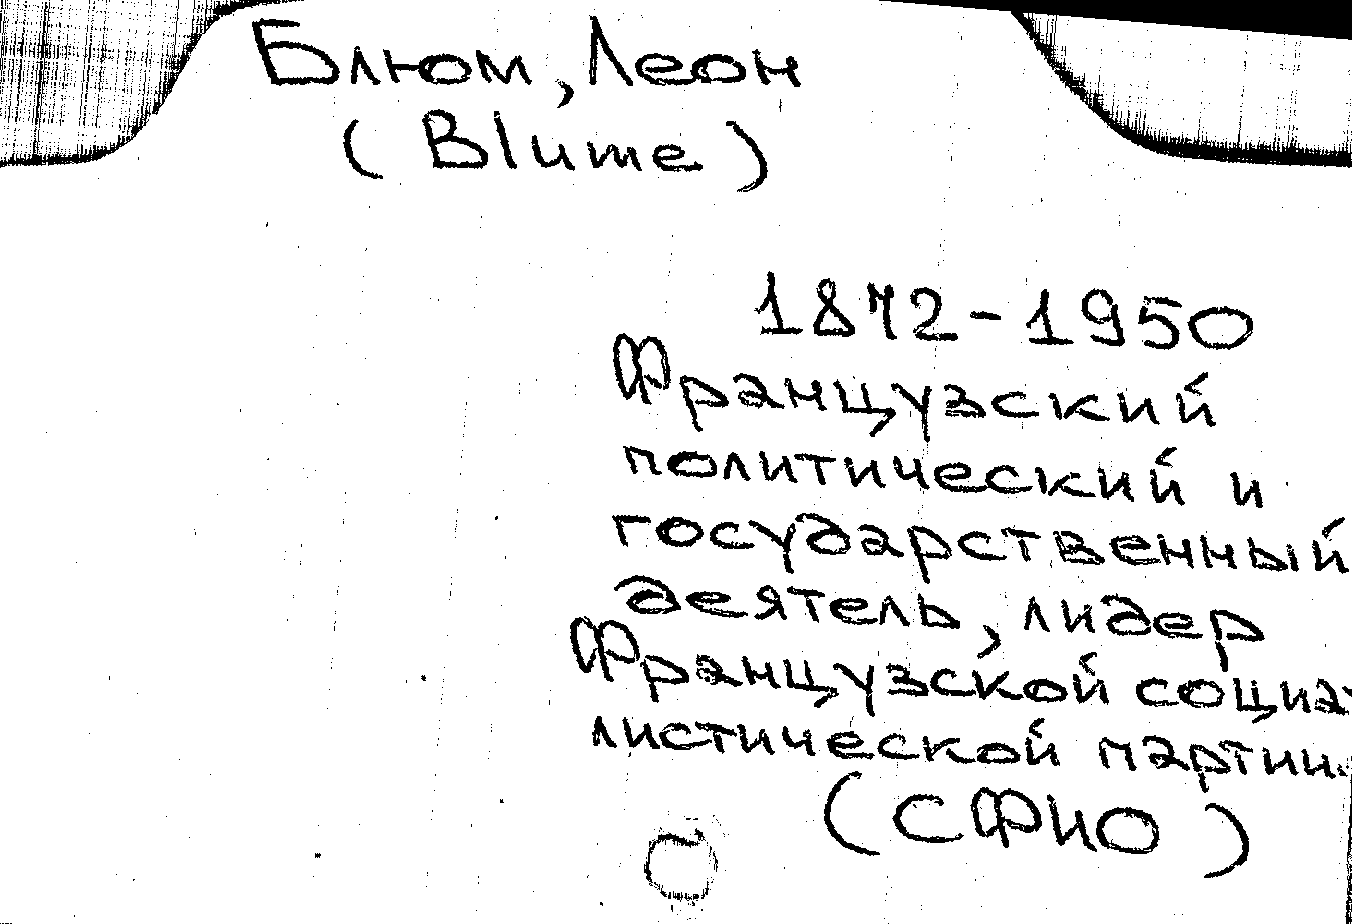 Блюм, Леон
( Blume )
1872-1950
Французский
политический и
государственный
деятель, лидер
Французской социа-
листической партии.
(СФИО)